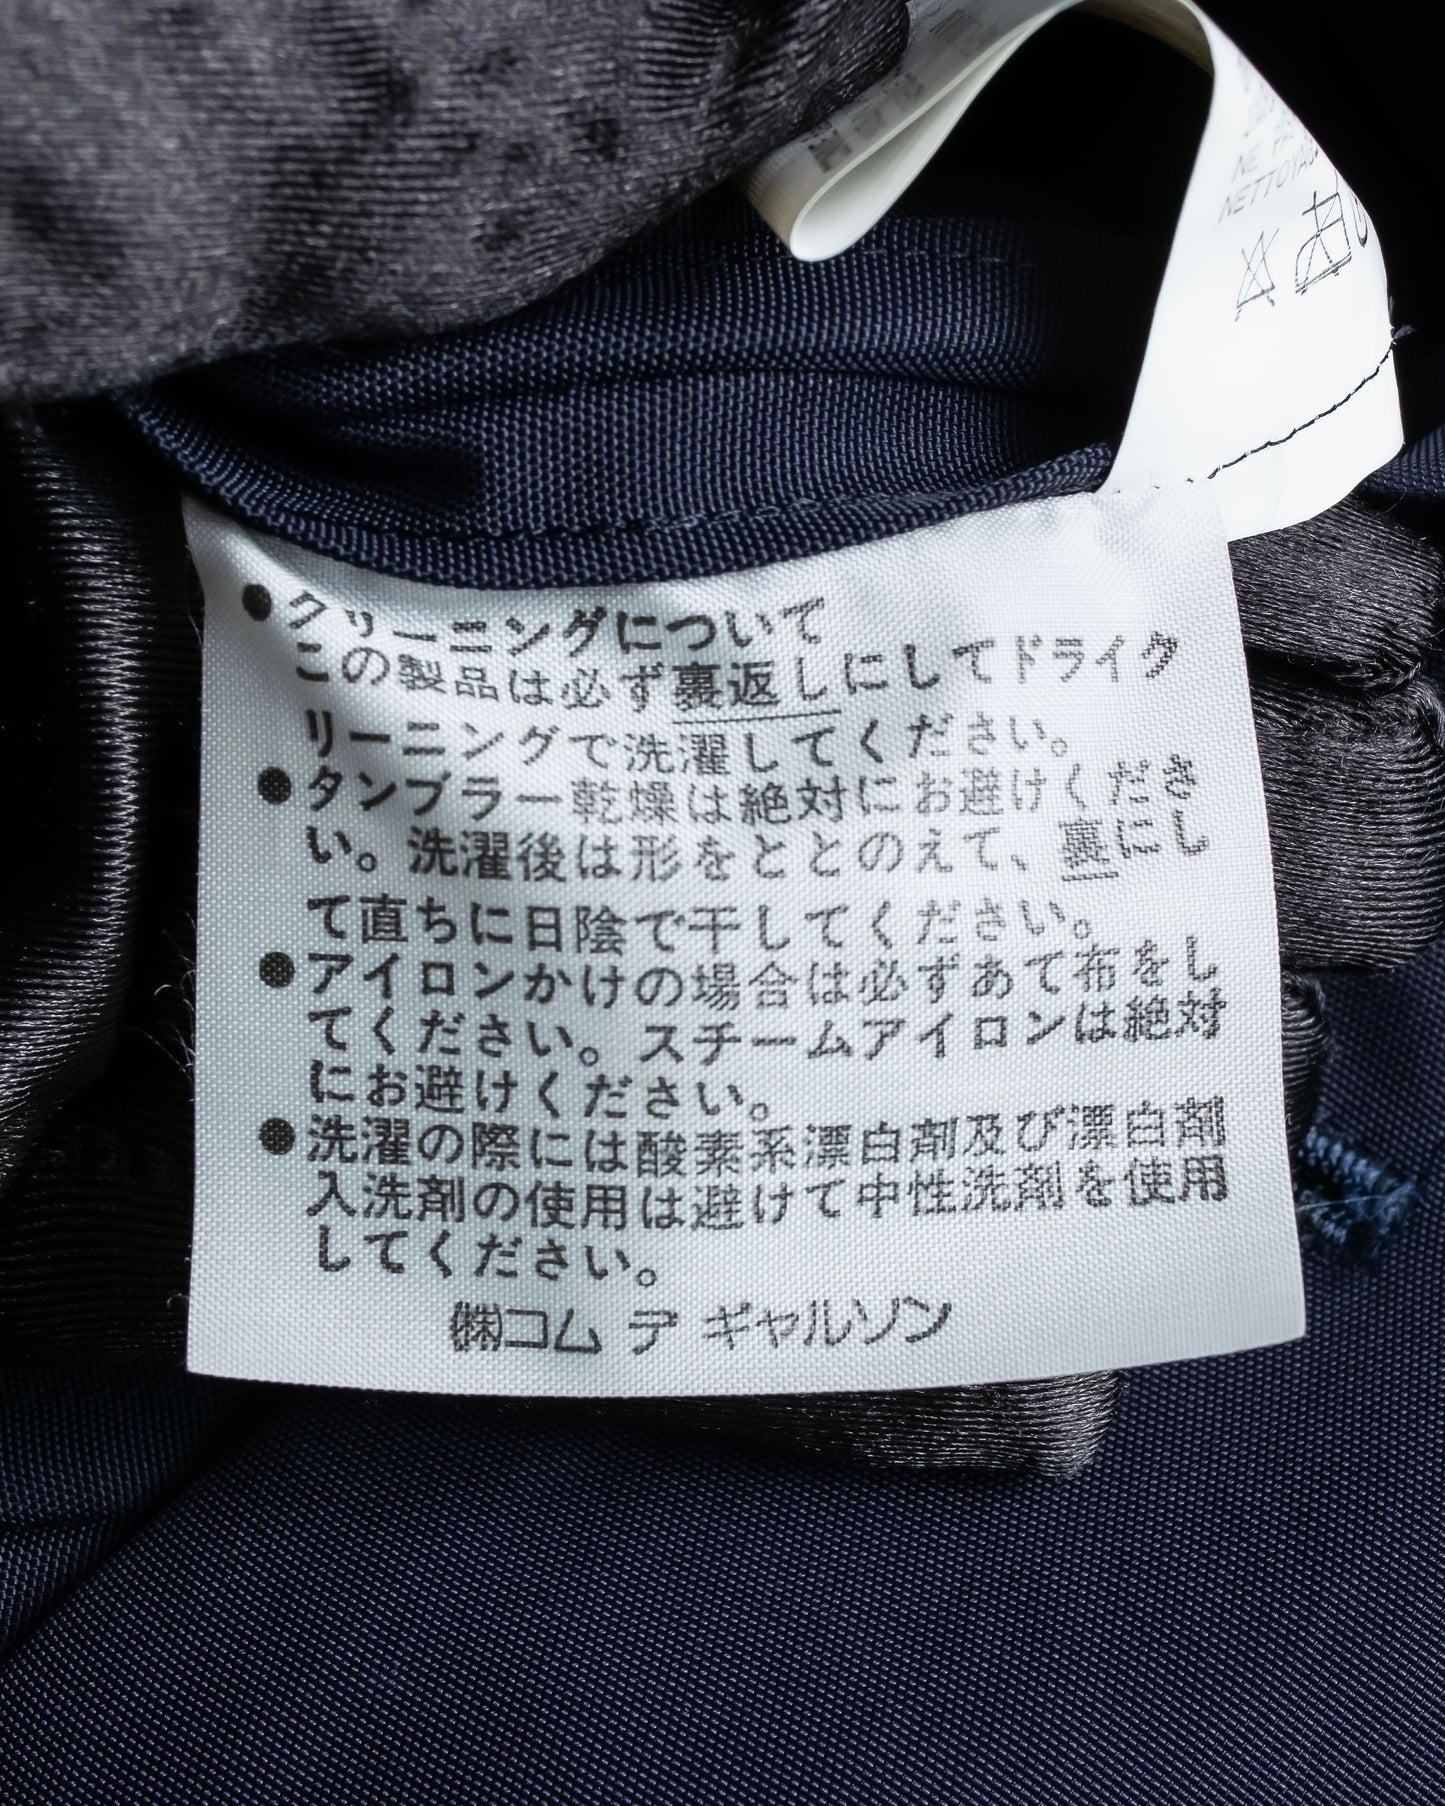 NE PA
NETTOYAG
●クリーニングについて
この製品は必ず裏返しにしてドライク
リーニングで洗濯してください。
●タンブラー乾燥は絶対にお避けくださ
い。洗濯後は形をととのえて、裏にし
て直ちに日陰で干してください。
●アイロンかけの場合は必ずあて布をし
てください。スチームアイロンは絶対
にお避けください。
●洗濯の際には酸素系漂白剤及び漂白剤
入洗剤の使用は避けて中性洗剤を使用
してください。
㈱コム デ ギャルソン